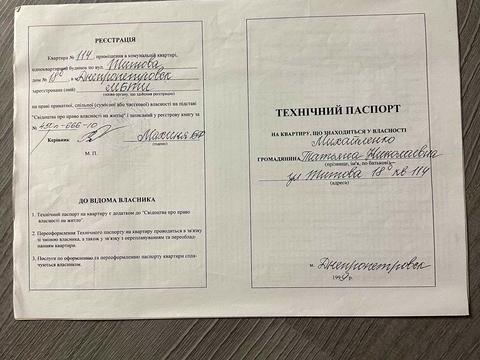 РЕЄСТРАЦІЯ
Квартира № 114, приміщення в комунальній квартирі,
одноквартирний будинок по вул. Титова
дом № 18б, в Днепропетровск
зареєстровані (ний) МБТИ
(назва органу, що здійснив реєстрацію)
на праві приватної, спільної (сумісної або часткової) власності на підставі
"Свідоцтва про право власності на житло" і записаний у реєстрову книгу за
№
Керівник
(підпис)
М. П.
ДО ВІДОМА ВЛАСНИКА
1. Технічний паспорт на квартиру є додатком до "Свідоцтва про право
власності на житло".
2. Переоформлення Технічного паспорту на квартиру проводиться в зв'язку
зі зміною власника, а також у зв'язку з переплануванням та переоблад-
нанням квартири.
3. Послуги по оформленню та переоформленню паспорту квартири спла-
чуються власником.
ТЕХНІЧНИЙ ПАСПОРТ
НА КВАРТИРУ, ЩО ЗНАХОДИТЬСЯ У ВЛАСНОСТІ
Михайленко
ГРОМАДЯНИНА Татьяна Николаевна
(прізвище, ім'я, по батькові)
ул Титова 18б кв 114
(адреса)
м. Днепропетровск